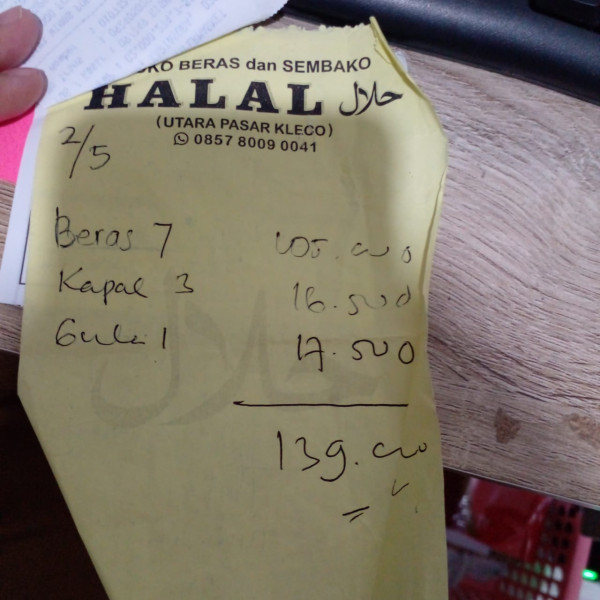 TOKO BERAS dan SEMBAKO
HALAL حلال
(UTARA PASAR KLECO)
0857 8009 0041
2/5
Beras 7 105.000
Kapal 3 16.500
Gula 1 17.500
139.000
حلال